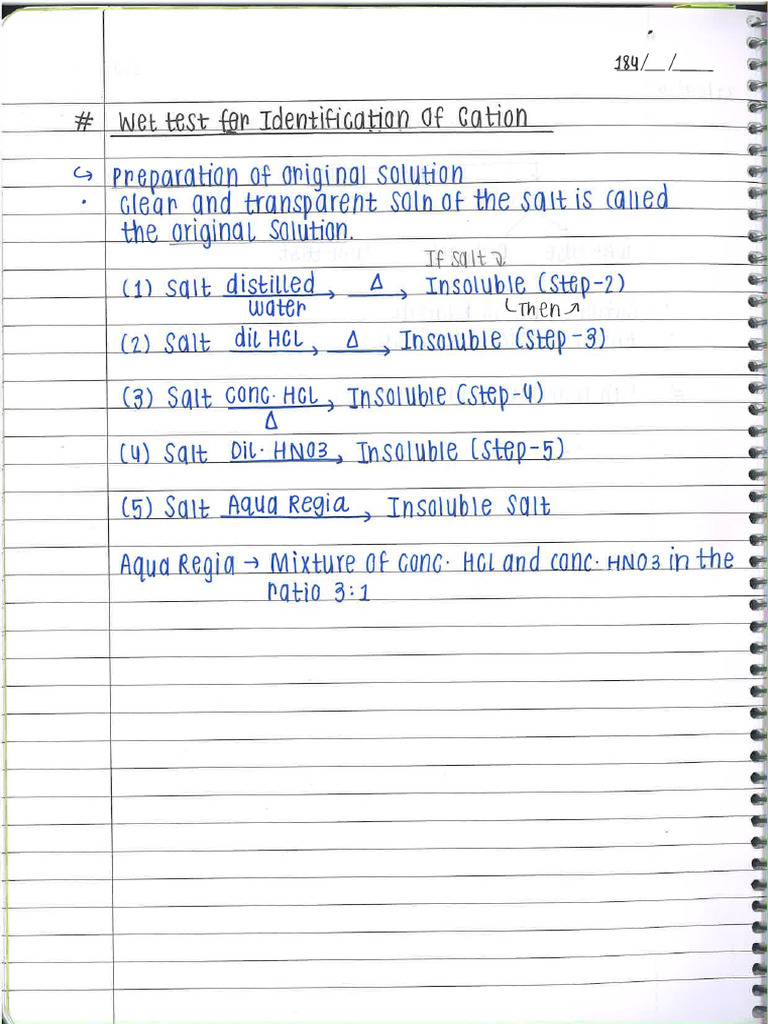 184/__/____
# Wet test for Identification of Cation
↪ Preparation of original solution
· Clear and transparent soln of the salt is called
the original solution.
If salt
(1) Salt distilled water → Δ → Insoluble (Step-2)
Then
(2) Salt dil HCl → Δ → Insoluble (Step-3)
(3) Salt conc. HCl → Δ Insoluble (Step-4)
(4) Salt Dil. HNO3 → Insoluble (Step-5)
(5) Salt Aqua Regia → Insoluble Salt
Aqua Regia → Mixture of conc. HCl and conc. HNO3 in the
ratio 3:1